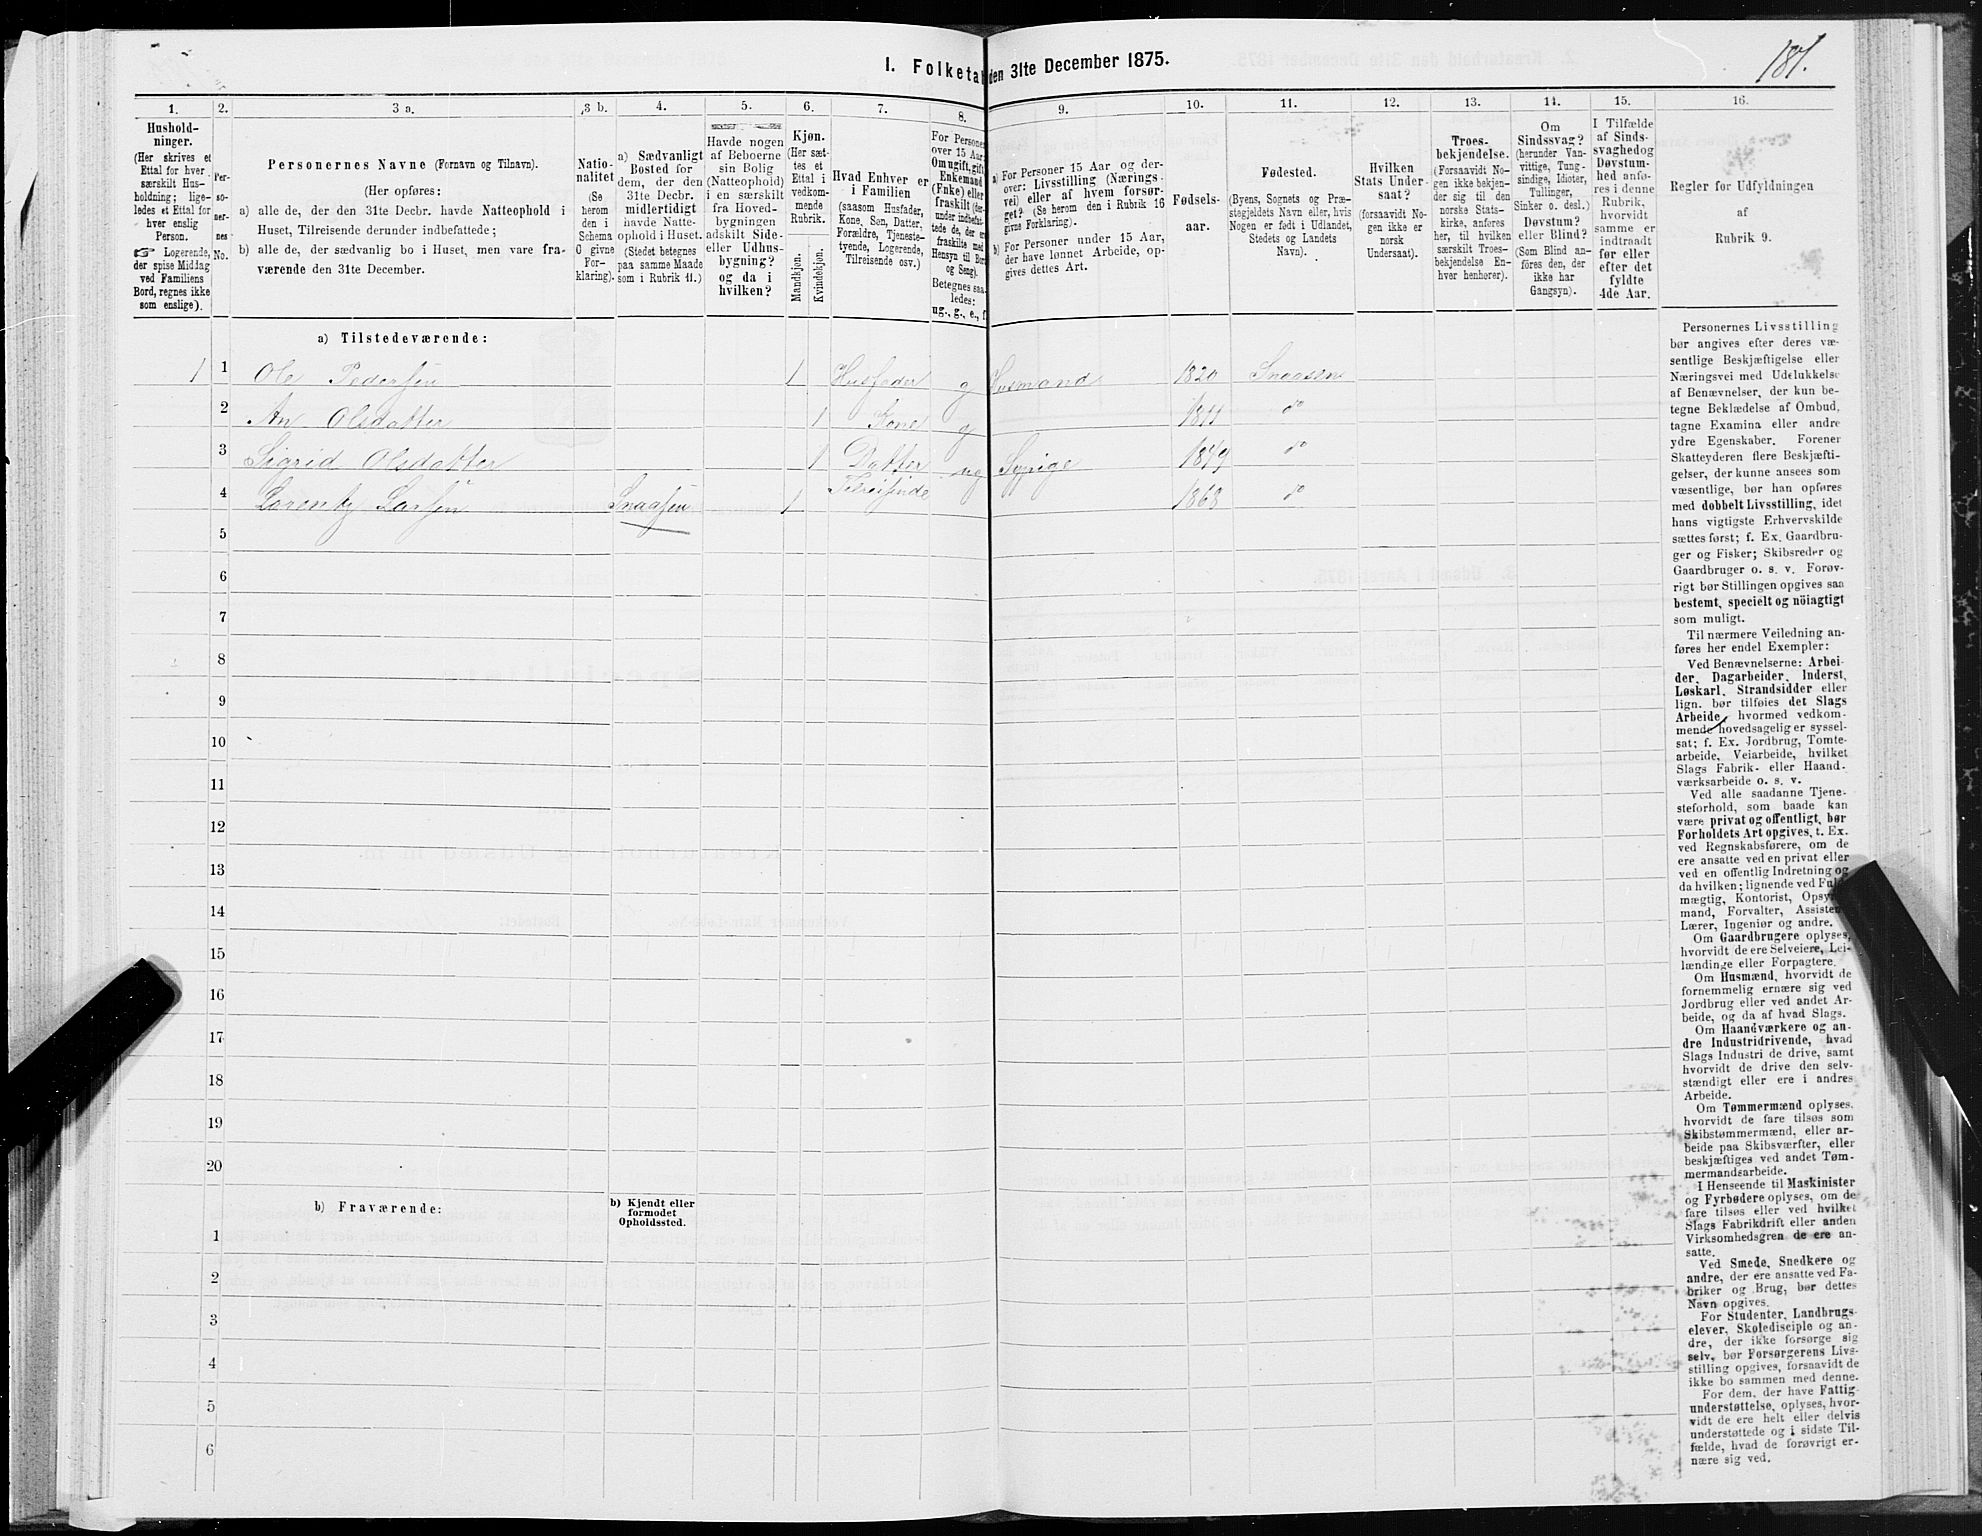 181.
I. Folketal den 31te December 1875.
1. 2. 3 a. 3 b. 4. 5. 6. 7. 8. 9. 10. 11. 12. 13. 14. 15. 16.
Hushold-
ninger.
(Her skrives et
Ettal for hver
særskilt Hus-
holdning; lige-
ledes et Ettal for
hver enslig
Person.
☞ Logerende,
der spise Middag
ved Familiens
Bord, regnes ikke
som enslige).
Per-
so-
ner-
nes
No.
Personernes Navne (Fornavn og Tilnavn).
(Her opføres:
a) alle de, der den 31te Decbr. havde Natteophold i
Huset, Tilreisende derunder indbefattede;
b) alle de, der sædvanlig bo i Huset, men vare fra-
værende den 31te December.
Natio-
nalitet
(Se
herom
den i
Schema
O givne
For-
klaring).
a) Sædvanligt
Bosted for
dem, der den
31te Decbr.
midlertidigt
havde Natte-
ophold i Huset.
(Stedet betegnes
paa samme Maade
som i Rubrik 11.)
Havde nogen
af Beboerne
sin Bolig
(Natteophold)
i en særskilt
fra Hoved-
bygningen
adskilt Side-
eller Udhus-
bygning?
og da i
hvilken?
Kjøn.
(Her sæt-
tes et
Ettal i
vedkom-
mende
Rubrik.
Mandskjøn.
Kvindekjøn.
Hvad Enhver er
i Familien
(saasom Husfader,
Kone, Søn, Datter,
Forældre, Tjeneste-
tyende, Logerende,
Tilreisende osv.)
For Personer
over 15 Aar:
Om ugift, gift,
Enkemand
(Enke) eller
fraskilt (der-
under indbefat-
tede de, der ere
fraskilte med
Hensyn til Bord
og Seng).
Betegnes saa-
ledes:
ug., g., e., f.
a) For Personer 15 Aar og der-
over: Livsstilling (Nærings-
vei) eller af hvem forsør-
get? (Se herom den i Rubrik 16
givne Forklaring).
b) For Personer under 15 Aar,
der have lønnet Arbeide, op-
gives dettes Art.
Fødsels-
aar.
Fødested.
(Byens, Sognets og Præ-
stegjeldets Navn eller, hvis
Nogen er født i Udlandet,
Stedets og Landets
Navn).
Hvilken
Stats Under-
saat?
(forsaavidt No-
gen ikke er
norsk
Undersaat).
Troes-
bekjendelse.
(Forsaavidt No-
gen ikke bekjen-
der sig til den
norske Stats-
kirke, anføres
her, til hvilken
særskilt Troes-
bekjendelse En-
hver henhører).
Om
Sindssvag?
(herunder Van-
vittige, Tung-
sindige, Idioter,
Tullinger,
Sinker o. desl.)
Døvstum?
eller Blind?
(Som Blind an-
føres den, der
ikke har
Gangsyn).
I Tilfælde
af Sinds-
svaghed og
Døvstum-
hed anfø-
res i denne
Rubrik,
hvorvidt
samme er
indtraadt
før eller
efter det
fyldte
4de Aar.
Regler for Udfyldningen
af
Rubrik 9.
a) Tilstedeværende:
1 1 Ole Pedersen 1 Husfader g Husmand 1820 Snaasen
2 An Olsdatter 1 Kone g 1811 do
3 Sigrid Olsdatter 1 Datter ug Sypige 1849 do
4 Larsen Snaasen 1 Tilreisende 1868 do
5
6
7
8
9
10
11
12
13
14
15
16
17
18
19
20
b) Fraværende:
b) Kjendt eller
formodet
Opholdssted.
1
2
3
4
5
6
Personernes Livsstilling
bør angives efter deres væ-
sentlige Beskjæftigelse eller
Næringsvei med Udelukkelse
af Benævnelser, der kun be-
tegne Beklædelse af Ombud,
tagne Examina eller andre
ydre Egenskaber. Forener
Skatteyderen flere Beskjæfti-
gelser, der kunne ansees som
væsentlige, bør han opføres
med dobbelt Livsstilling, idet
hans vigtigste Erhvervskilde
sættes først; f. Ex. Gaardbru-
ger og Fisker; Skibsreder og
Gaardbruger o. s. v. Forøv-
rigt bør Stillingen opgives saa
bestemt, specielt og nöiagtigt
som muligt.
Til nærmere Veiledning an-
føres her endel Exempler:
Ved Benævnelserne: Arbei-
der, Dagarbeider, Inderst,
Løskarl, Strandsidder eller
lign. bør tilføies det Slags
Arbeide, hvormed vedkom-
mende hovedsagelig er syssel-
sat; f. Ex. Jordbrug, Tomte-
arbeide, Veiarbeide, hvilket
Slags Fabrik- eller Haand-
værksarbeide o. s. v.
Ved alle saadanne Tjene-
steforhold, som baade kan
være privat og offentligt, bør
Forholdets Art opgives, t. Ex.
ved Regnskabsførere, om de
ere ansatte ved en privat eller
ved en offentlig Indretning og
da hvilken; lignende ved Fuld-
mægtig, Kontorist, Opsyns-
mand, Forvalter, Assistent,
Lærer, Ingeniør og andre.
Om Gaardbrugere oplyses,
hvorvidt de ere Selveiere, Lei-
lændinge eller Forpagtere.
Om Husmænd, hvorvidt de
fornemmelig ernære sig ved
Jordbrug eller ved andet Ar-
beide, og da af hvad Slags.
Om Haandværkere og an-
dre Industridrivende, hvad
Slags Industri de drive, samt
hvorvidt de drive den selv-
stændigt eller ere i andres
Arbeide.
Om Tømmermænd oplyses,
hvorvidt de fare tilsøs som
Skibstømmermænd, eller ar-
beide paa Skibsværfter, eller
beskjæftiges ved andet Tøm-
mermandsarbeide.
I Henseende til Maskinister
og Fyrbødere oplyses, om de
fare tilsøs eller ved hvilket
Slags Fabrikdrift eller anden
Virksomhedsgren de ere an-
satte.
Ved Smede, Snedkere og
andre, der ere ansatte ved Fa-
briker og Brug, bør dettes
Navn opgives.
For Studenter, Landbrugs-
elever, Skoledisciple og an-
dre, der ikke forsørge sig
selv, bør Forsørgerens Livs-
stilling opgives, forsaavidt de
ikke bo sammen med denne.
For dem, der have Fattig-
understøttelse, oplyses, hvor-
vidt de ere helt eller delvis
understøttede og i sidste Til-
fælde, hvad de forøvrigt er-
nære sig ved.